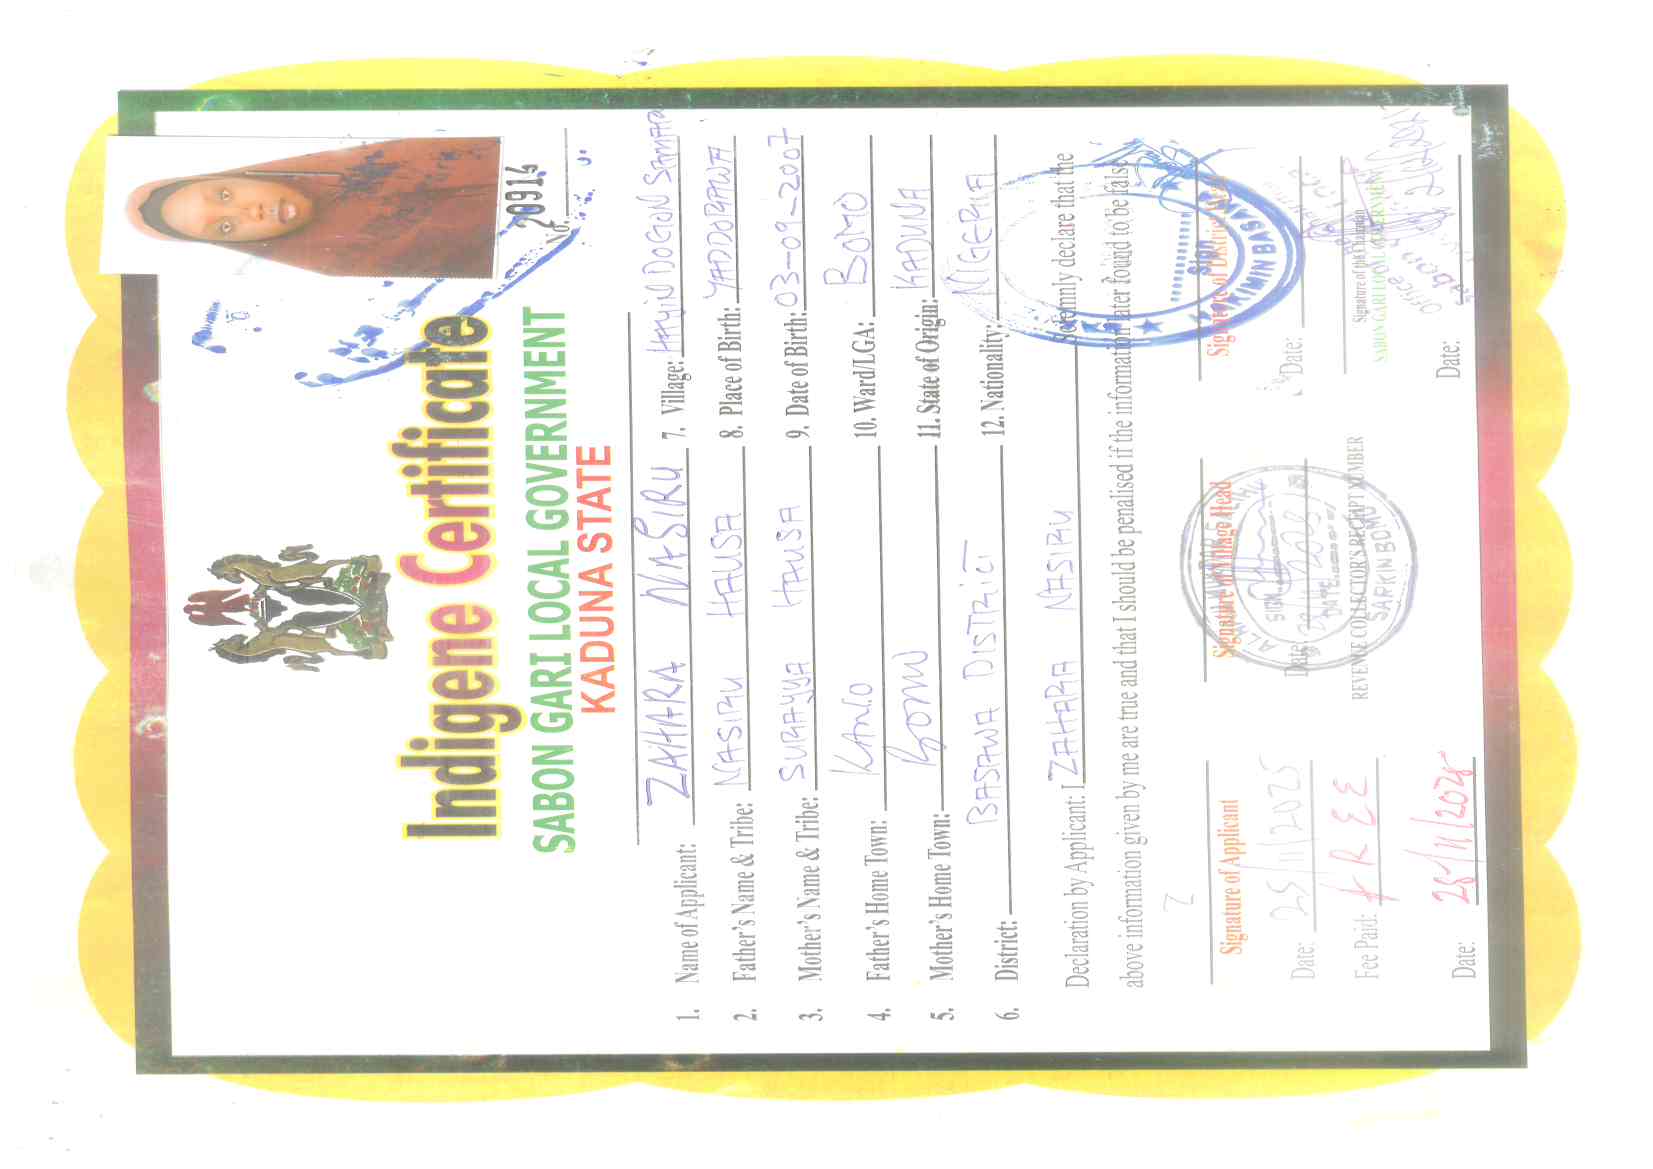 No. 20914
Indigene Certificate
SABON GARI LOCAL GOVERNMENT
KADUNA STATE
1. Name of Applicant: ZAHARA NASIRU
2. Father's Name & Tribe: NASIRU HAUSA
3. Mother's Name & Tribe: SURAYYA HAUSA
4. Father's Home Town:
5. Mother's Home Town: Bomo
6. District: BASAWA DISTRICT
7. Village: HAYIN DOGON SAMARA
8. Place of Birth: YADDORAWA
9. Date of Birth: 03-09-2007
10. Ward/LGA: BOMO
11. State of Origin: KADUNA
12. Nationality: NIGERIA
Declaration by Applicant: I ZAHARA NASIRU Solemnly declare that the
above information given by me are true and that I should be penalised if the information later found to be false
Signature of Applicant
Date: 25/11/2025
Signature of Village Head
SIGN
DATE
SARKIN BOMO
Date:
Signature of District Head
SIGN
HAKIMIN BASAWA
Date:
Fee Paid: FREE
REVENUE COLLECTOR'S RECEIPT NUMBER
Signature of the Chairman
SABON GARI LOCAL GOVERNMENT
Office
Sabon
Date: 25/11/2025
Date: